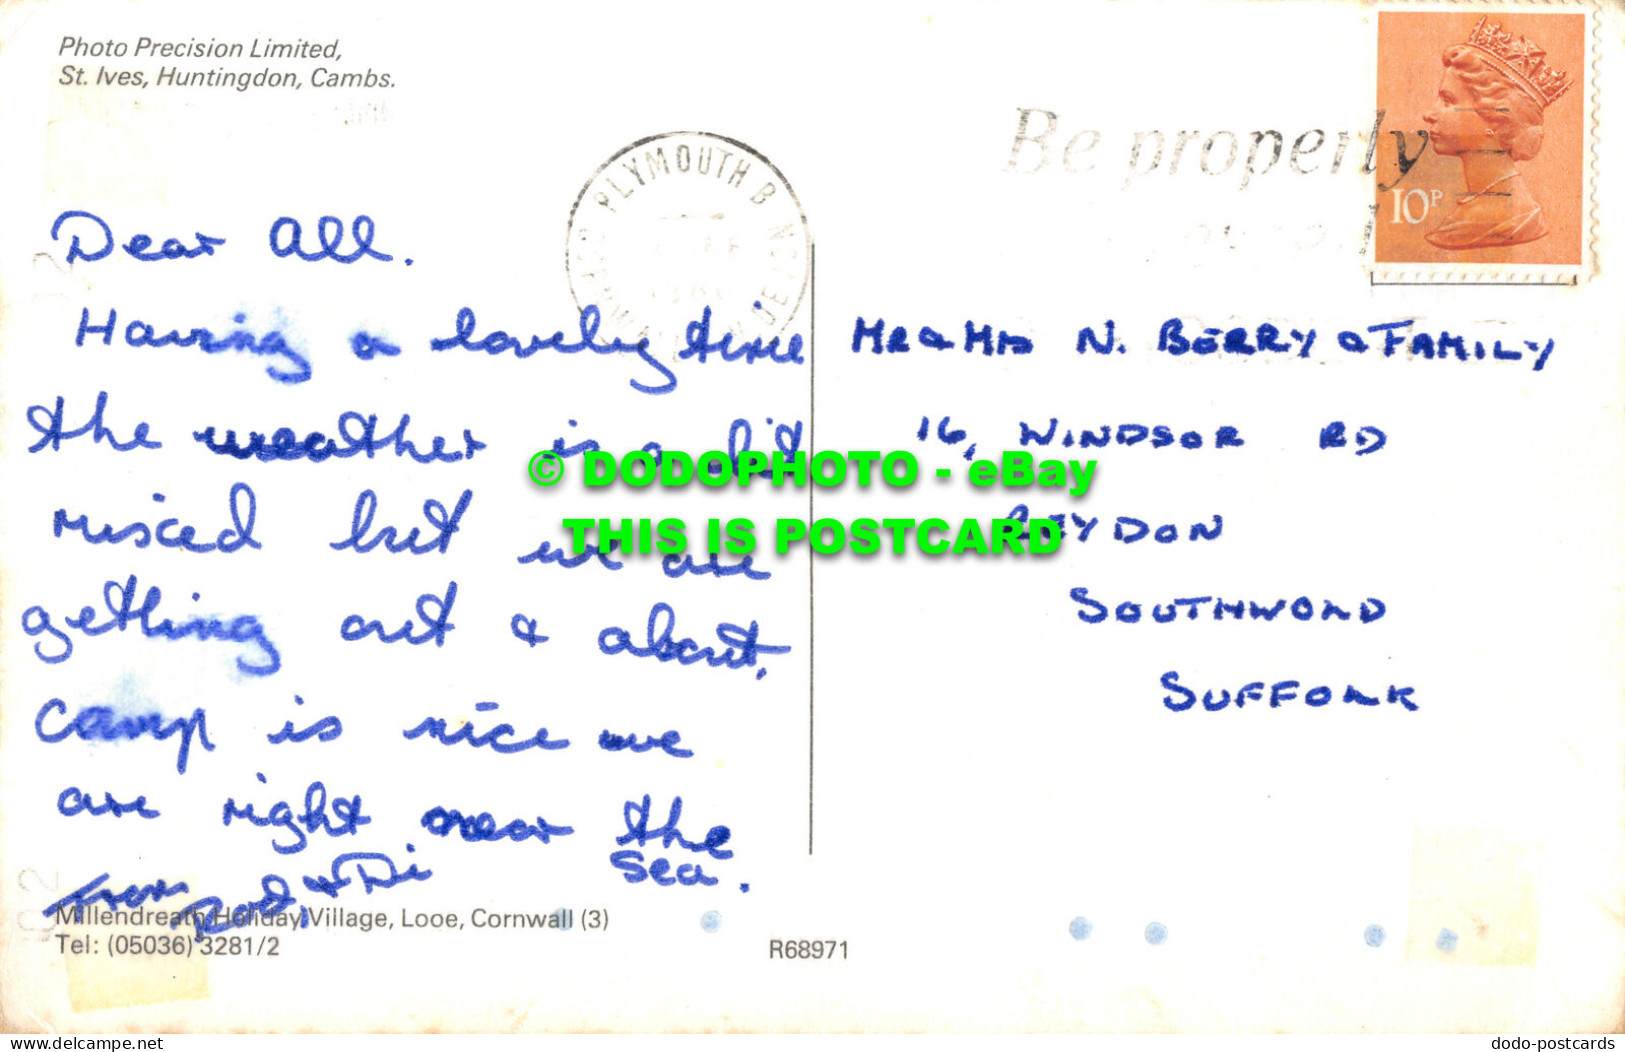 Photo Precision Limited,
St. Ives, Huntingdon, Cambs.
PLYMOUTH B
DEVON
Be properly
10P
Dear All.
Having a lovely time
the weather is a bit
misced but we are
getting out & about.
Camp is nice we
are right near the
sea.
from Rod, & Di
MR & MRS N. BERRY & FAMILY
16, WINDSOR RD
REYDON
SOUTHWOLD
SUFFOLK
© DODOPHOTO - eBay
THIS IS POSTCARD
Millendreath Holiday Village, Looe, Cornwall (3)
Tel: (05036) 3281/2
R68971
www.delcampe.net/All
dodo-postcards